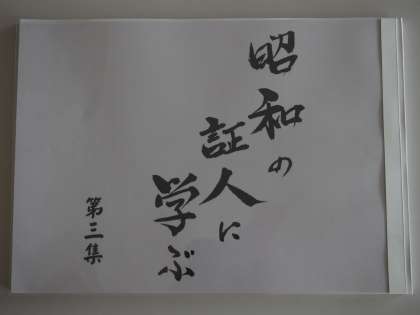 昭和の
証人に
学ぶ
第三集